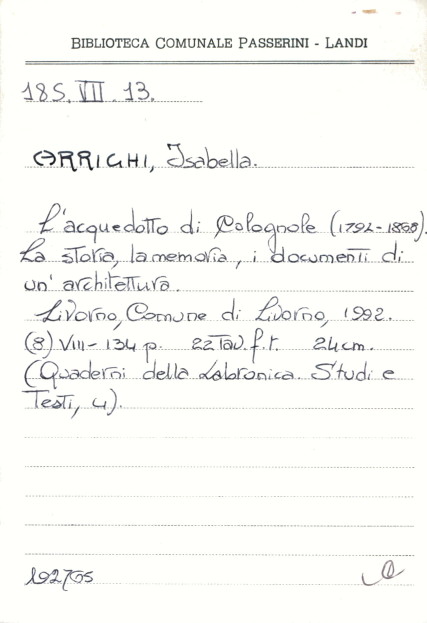 BIBLIOTECA COMUNALE PASSERINI - LANDI
185.VII.13.
ARRIGHI, Isabella.
L'acquedotto di Colognole (1792-1868).
La storia, la memoria, i documenti di
un'architettura.
Livorno, Comune di Livorno, 1992.
(8) VIII-134 p. 22 Tav. f.t. 24 cm.
(Quaderni della Labronica. Studi e
Testi, 4).
192705